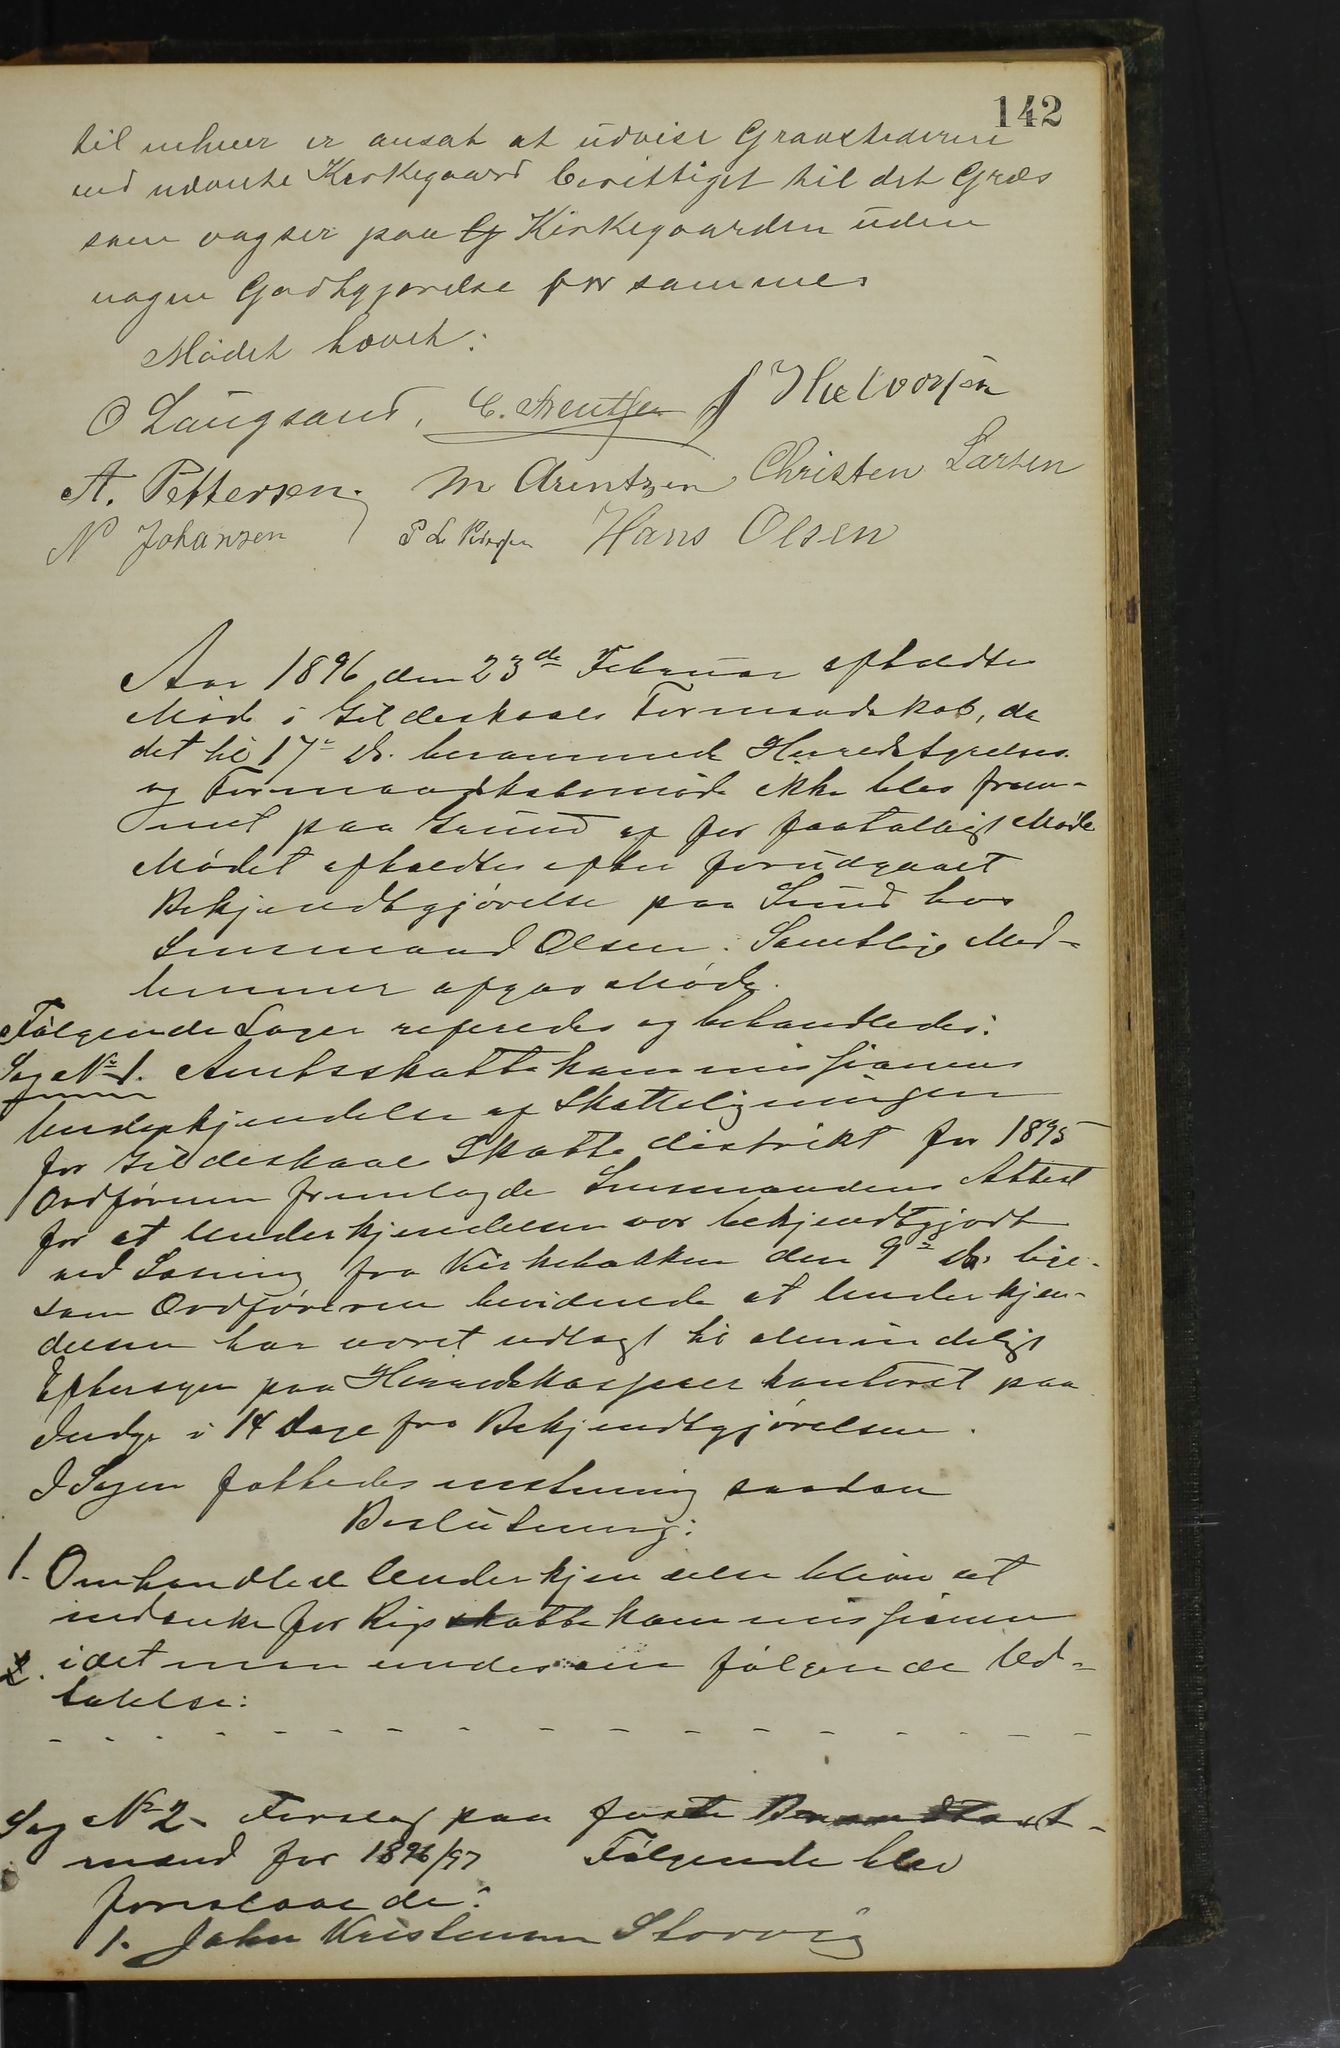 142
til enhver er ansat at udvise Gravstederne
ved nævnte Kirkegaard berettiget til det Græs
som vagser paa G Kirkegaarden uden
nogen Godtgjørelse for samme
Mødet hævet:
O Langsand, C. Arentsen J Halvorsen
A. Pettersen. M Arentzen Christen Larsen
N Johansen P L Pedersen Hans Olsen
Aar 1896 den 23de Februar afholdtes
Møde i Gildeskaals Formandskab, da
det til 17de ds. berammede Herredstyrelses
og Formandskabsmøde ikke blev frem-
met paa Grund af for faatalligt Møde
Mødet afholdtes efter forudgaaet
Bekjendtgjørelse paa Sund hos
Lensmand Olsen. Samtlige Med-
lemmer afgav Møde.
Følgende Sager refereredes og behandledes:
Sag No 1. Amtsskattekommissionens
Underkjendelse af Skatteligningen
for Gildeskaal Skattedistrikt for 1895
Ordføreren fremlagde Lensmandens Attest
for at Underkjendelsen var bekjendtgjort
ved Læsning fra Kirkebakken den 9de ds. lige-
som Ordføreren bevidnede at Underkjen-
delsen har været udlagt til almindeligt
Eftersyn paa Herredskassererkontoret paa
Indyr i 14 Dage fra Bekjendtgjørelsen.
I Sagen fattedes enstemmig saadan
Beslutning:
1. Omhandlede Underkjendelse bliver at
indanke for Rigsskattekommissionen
2. idet man under ein følgende Ud-
talelse:
- - - - - - - - - - - - - - -
Sag No 2. Forslag paa faste Brandtaxt-
mænd for 1896/97 Følgende blev
foreslaaede:
1. John Kristensen Storvig